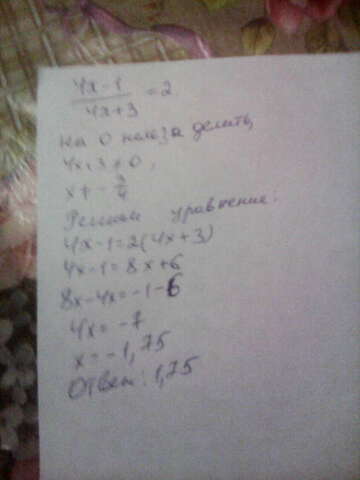 4x-1/4x+3 = 2.
На 0 нельзя делить,
4x+3≠0,
x≠-3/4
Решим уравнение:
4x-1=2(4x+3)
4x-1=8x+6
8x-4x=-1-6
4x=-7
x=-1,75
Ответ: 1,75